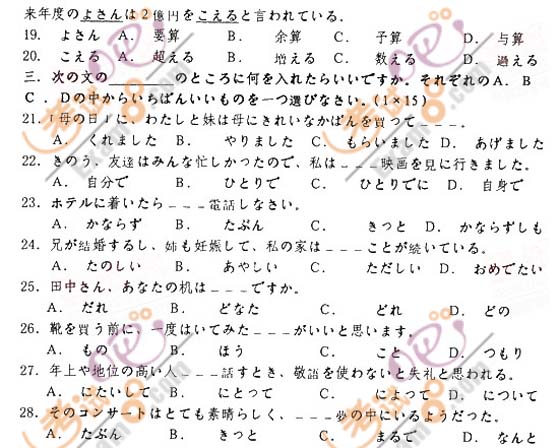 来年度のよさんは２億円をこえると言われている。
19. よさん A. 要算 B. 余算 C. 子算 D. 与算
20. こえる A. 超える B. 増える C. 数える D. 過える
三．次の文の＿＿＿＿のところに何を入れたらいいですか。それぞれのA．B
C．Dの中からいちばんいいものを一つ選びなさい．(1×15)
21.「母の日」に、わたしと妹は母にきれいなかばんを買って＿＿＿。
A. くれました B. やりました C. もらいました D. あげました
22. きのう、友達はみんな忙しかったので、私は＿＿＿映画を見に行きました。
A. 自分で B. ひとりで C. ひとりでに D. 自身で
23. ホテルに着いたら＿＿＿電話しなさい。
A. かならず B. たぶん C. きっと D. かならずしも
24. 兄が結婚するし、姉も妊娠して、私の家は＿＿＿ことが続いている。
A. たのしい B. あやしい C. ただしい D. おめでたい
25. 田中さん、あなたの机は＿＿＿ですか。
A. だれ B. どなた C. どれ D. どの
26. 靴を買う前に、一度はいてみた＿＿＿がいいと思います。
A. もの B. ほう C. こと D. つもり
27. 年上や地位の高い人＿＿＿話すとき、敬語を使わないと失礼と思われる。
A. にたいして B. にとって C. によって D. について
28. そのコンサートはとても素晴らしく、＿＿＿夢の中にいるようだった。
A. たぶん B. きっと C. まるで D. なんと